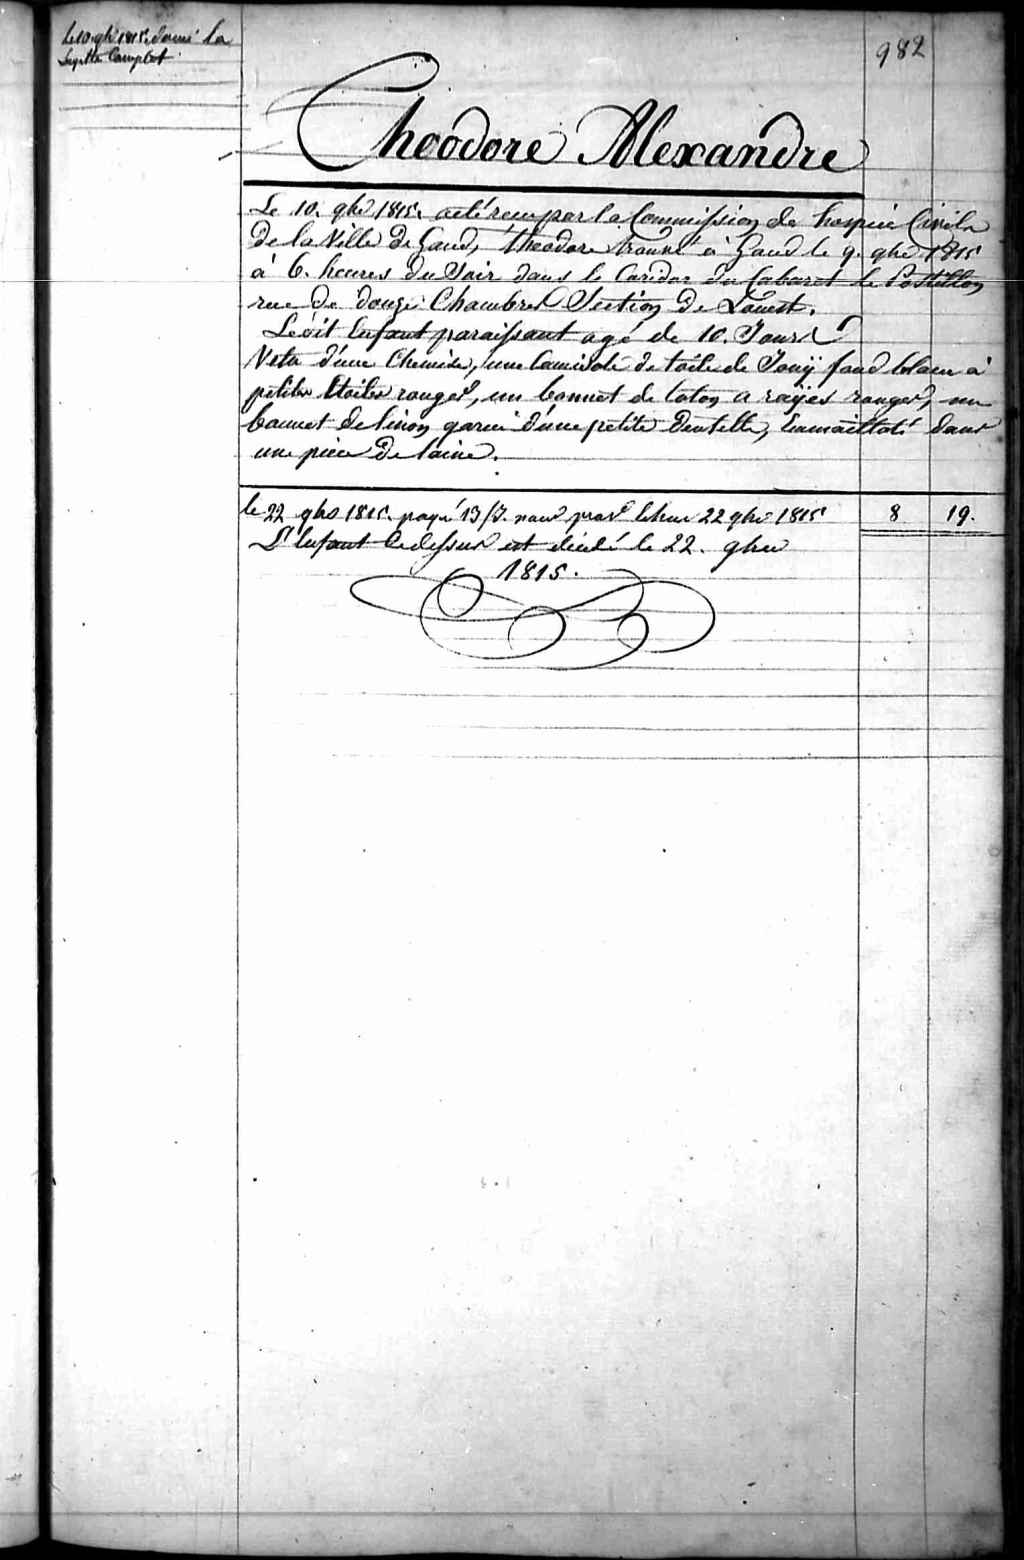 Le 10. gbre 1815. donné la
Layette Complet
982
Theodore Alexandre
Le 10. 9bre 1815. a été reçu par la Commission des hospices Civils
de la Ville de Gand, theodore trouvé à Gand le 9. 9bre 1815
à 6. heures du Soir dans le Coridor du Cabaret le Postillon
rue de douze Chambres Section de Louest.
Ledit Enfant paraissant agé de 10. Jours
Vetu d'une Chemise, une Camisole de toile de Jouÿ fond blanc à
petites Etoiles rouges, un bonnet de Coton a raÿes rouges, un
bonnet de linon garni d'une petite Dentelle, Emmailloté dans
une piece de laine.
le 22 9bre 1815. payé 13/J. 22 9bre 1815 8 19.
L'Enfant Cidessus est décédé le 22. 9bre
1815.